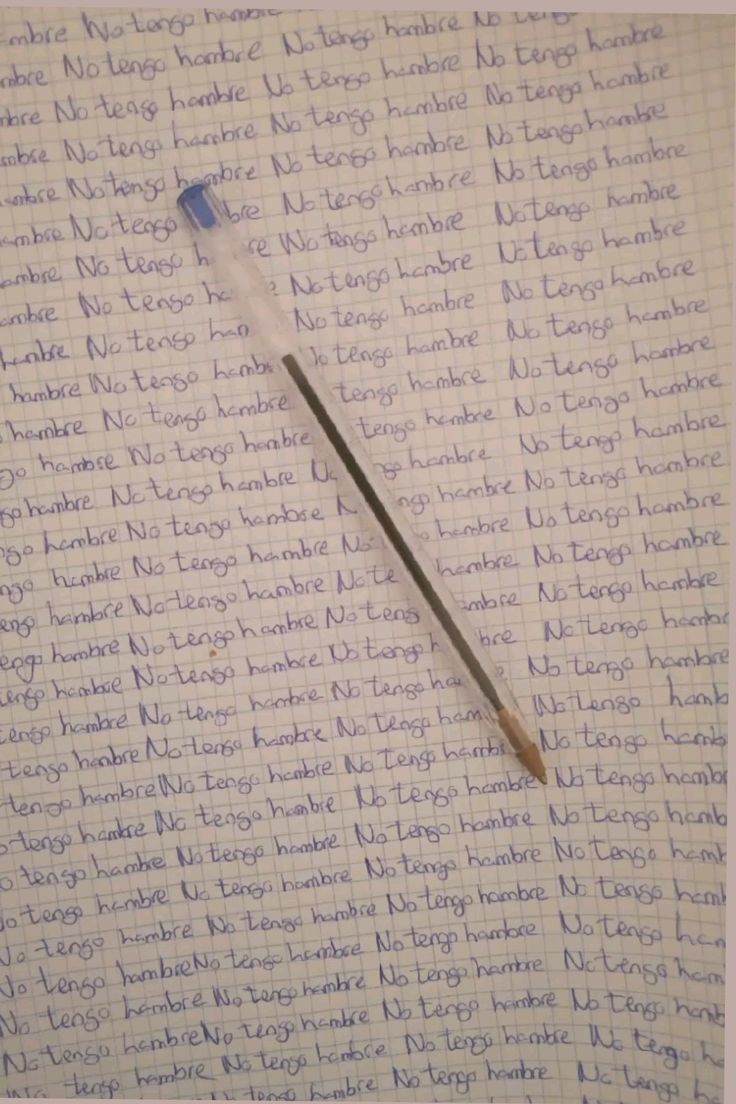 mbre No tengo hambre
mbre No tengo hambre No tengo hambre No tengo
mbre No tengo hambre No tengo hambre No tengo hambre
ambre No tengo hambre No tengo hambre No tengo hambre
ambre No tengo hambre No tengo hambre No tengo hambre
ambre No tengo bre No tengo hambre No tengo hambre
ambre No tengo h re No tengo hambre No tengo hambre
ambre No tengo ha e No tengo hambre No tengo hambre
hambre No tengo ham No tengo hambre No tengo hambre
hambre No tengo hamb No tengo hambre No tengo hambre
hambre No tengo hambre tengo hambre No tengo hambre
go hambre No tengo hambre tengo hambre No tengo hambre
go hambre No tengo hambre No ngo hambre No tengo hambre
ngo hambre No tengo hambre N ngo hambre No tengo hambre
ngo hambre No tengo hambre No o hambre No tengo hambre
engo hambre No tengo hambre No te hambre No tengo hambre
engo hambre No tengo hambre No teng ambre No tengo hambre
tengo hambre No tengo hambre No tengo h bre No tengo hambr
tengo hambre No tengo hambre No tengo ha e No tengo hambre
tengo hambre No tengo hambre No tengo ham No tengo hamb
tengo hambre No tengo hambre No tengo hambr No tengo hamb
o tengo hambre No tengo hambre No tengo hambre No tengo hambr
o tengo hambre No tengo hambre No tengo hambre No tengo hamb
No tengo hambre No tengo hambre No tengo hambre No tengo hamb
No tengo hambre No tengo hambre No tengo hambre No tengo ham
No tengo hambre No tengo hambre No tengo hambre No tengo ham
No tengo hambre No tengo hambre No tengo hambre No tengo ham
No tengo hambre No tengo hambre No tengo hambre No tengo hamb
No tengo hambre No tengo hambre No tengo hambre No tengo h
tengo hambre No tengo hambre No tengo ha